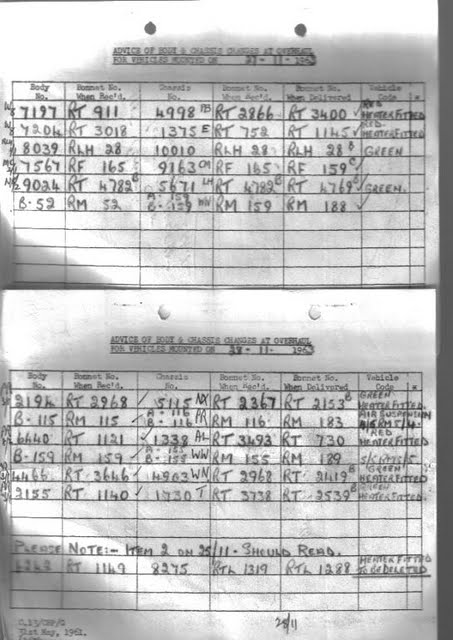 ADVICE OF BODY & CHASSIS CHANGES AT OVERHAUL
FOR VEHICLES MOUNTED ON 27-11-1963
Body No. Bonnet No. When Rec'd. Chassis No. Bonnet No. When Rec'd. Bonnet No. When Delivered Vehicle Code *
7197 RT 911 4998 PB RT 2866 RT 3400 ✓ RED HEATER FITTED
7204 RT 3018 1375 E RT 752 RT 1145 ✓ RED HEATER FITTED
8039 RLH 28 10010 RLH 28 RLH 28 B GREEN
7567 RF 165 9163 CM RF 165 RF 159 C ✓
9024 RT 4782 B 5671 LH RT 4782 B RT 4769 B ✓ GREEN.
B-52 RM 52 A-159 B-159 WN RM 159 RM 188 ✓
ADVICE OF BODY & CHASSIS CHANGES AT OVERHAUL
FOR VEHICLES MOUNTED ON 28-11-1963
Body No. Bonnet No. When Rec'd. Chassis No. Bonnet No. When Rec'd. Bonnet No. When Delivered Vehicle Code *
2194 RT 2968 ✓ 5115 NX RT 2367 RT 2153 B GREEN HEATER FITTED
B-115 RM 115 A-116 B-116 PR RM 116 RM 183 AIR SUSPENSION
6640 RT 1121 ✓ 1338 AL RT 3493 RT 730 RED HEATER FITTED
B-159 RM 159 ✓ WW RM 155 RM 189
4466 RT 3646 ✓ 4963 WN RT 2968 RT 2419 B GREEN HEATER FITTED
2155 RT 1140 ✓ 1730 T RT 3738 RT 2539 B GREEN HEATER FITTED
PLEASE NOTE:- ITEM 2 ON 25/11 - SHOULD READ.
RT 1149 8275 RTL 1319 RTL 1288 HEATER FITTED TO BE DELETED
31st May, 1961.
28/11